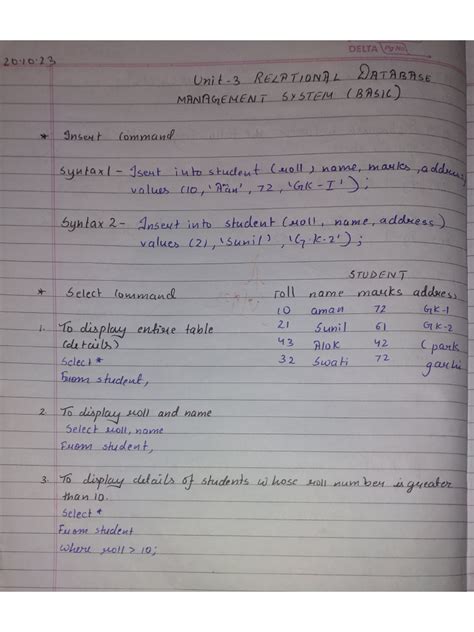 DELTA Pg No.
20.10.23
Unit-3 RELATIONAL DATABASE
MANAGEMENT SYSTEM (BASIC)
* Insert Command
Syntax 1 - Isert into student (roll, name, marks, address)
values (10, 'Aan', 72, 'GK-I');
Syntax 2 - Insert into student (roll, name, address)
values (21, 'Sunil', 'G.K-2');
STUDENT
* Select Command roll name marks address
10 aman 72 GK-1
1. To display entire table 21 Sunil 61 GK-2
(details) 43 Alok 42 (park
Select * 32 Swati 72
From student,
2. To display roll and name
Select roll, name
From student,
3. To display details of students whose roll number is greater
than 10.
Select *
From student
where roll > 10;